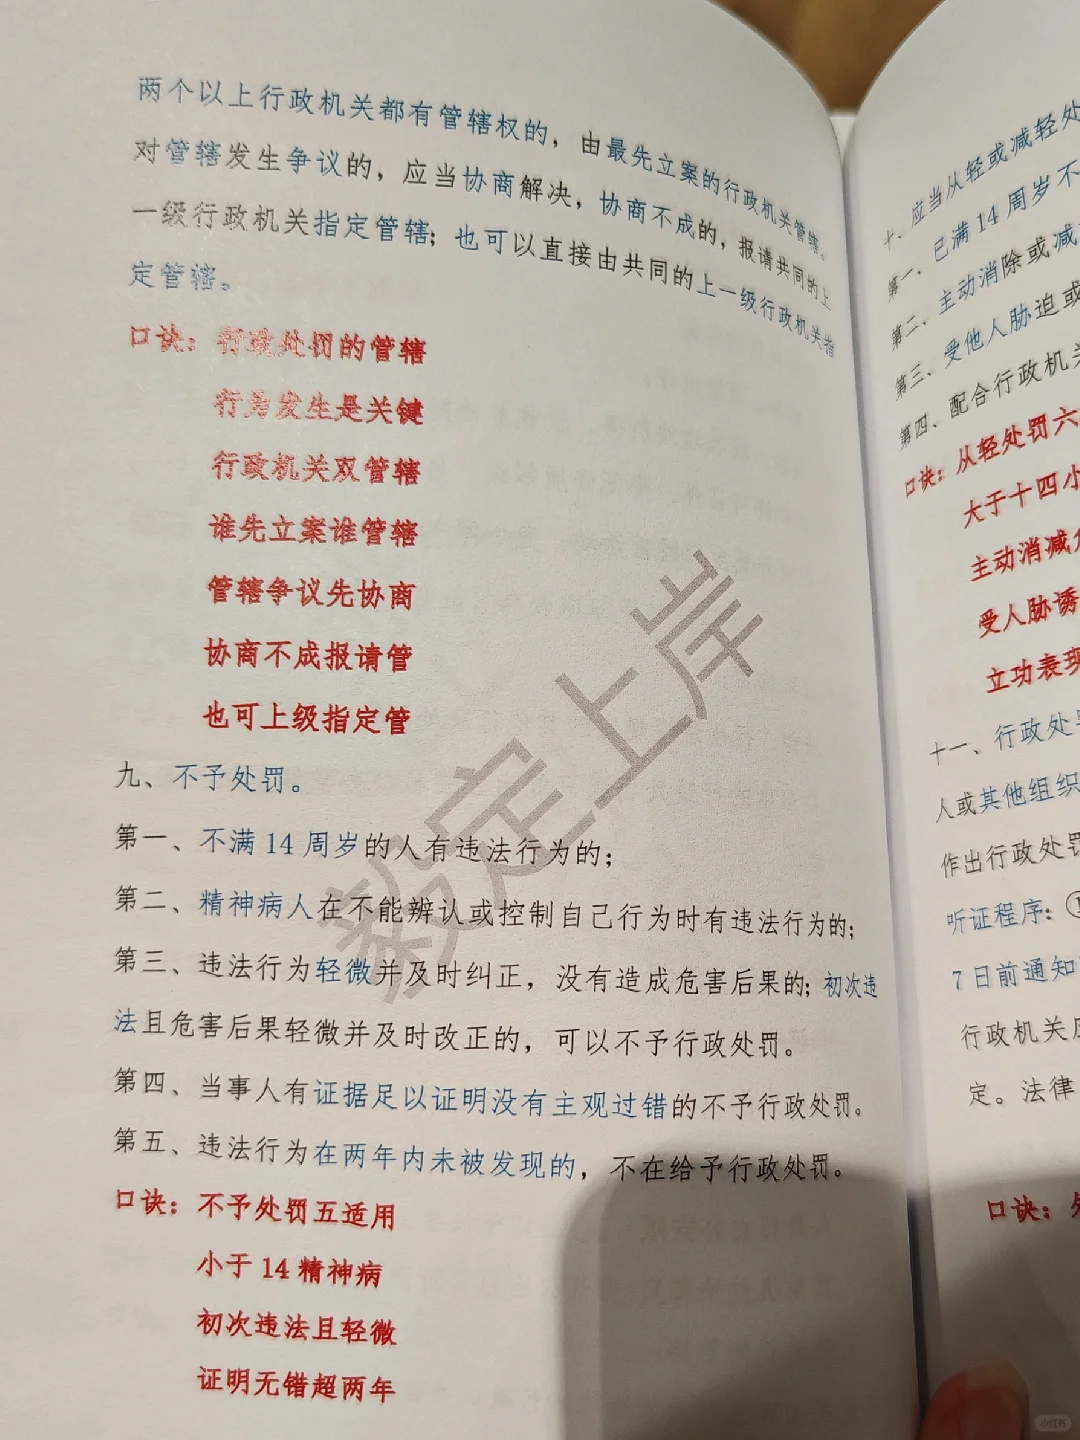 两个以上行政机关都有管辖权的，由最先立案的行政机关管辖。
对管辖发生争议的，应当协商解决，协商不成的，报请共同的上
一级行政机关指定管辖；也可以直接由共同的上一级行政机关指
定管辖。
口诀：行政处罚的管辖
行为发生是关键
行政机关双管辖
谁先立案谁管辖
管辖争议先协商
协商不成报请管
也可上级指定管
九、不予处罚。
第一、不满14周岁的人有违法行为的；
第二、精神病人在不能辨认或控制自己行为时有违法行为的；
第三、违法行为轻微并及时纠正，没有造成危害后果的；初次违
法且危害后果轻微并及时改正的，可以不予行政处罚。
第四、当事人有证据足以证明没有主观过错的不予行政处罚。
第五、违法行为在两年内未被发现的，不在给予行政处罚。
口诀：不予处罚五适用
小于14精神病
初次违法且轻微
证明无错超两年
毅定上岸
十、应当从轻或减轻处
第一、已满14周岁不
第二、主动消除或减
第三、受他人胁迫或
第四、配合行政机关
口诀：从轻处罚六
大于十四小
主动消减
受人胁诱
立功表现
十一、行政处
人或其他组织
作出行政处罚
听证程序：①
7日前通知
行政机关
定。法律
口诀：
小红书